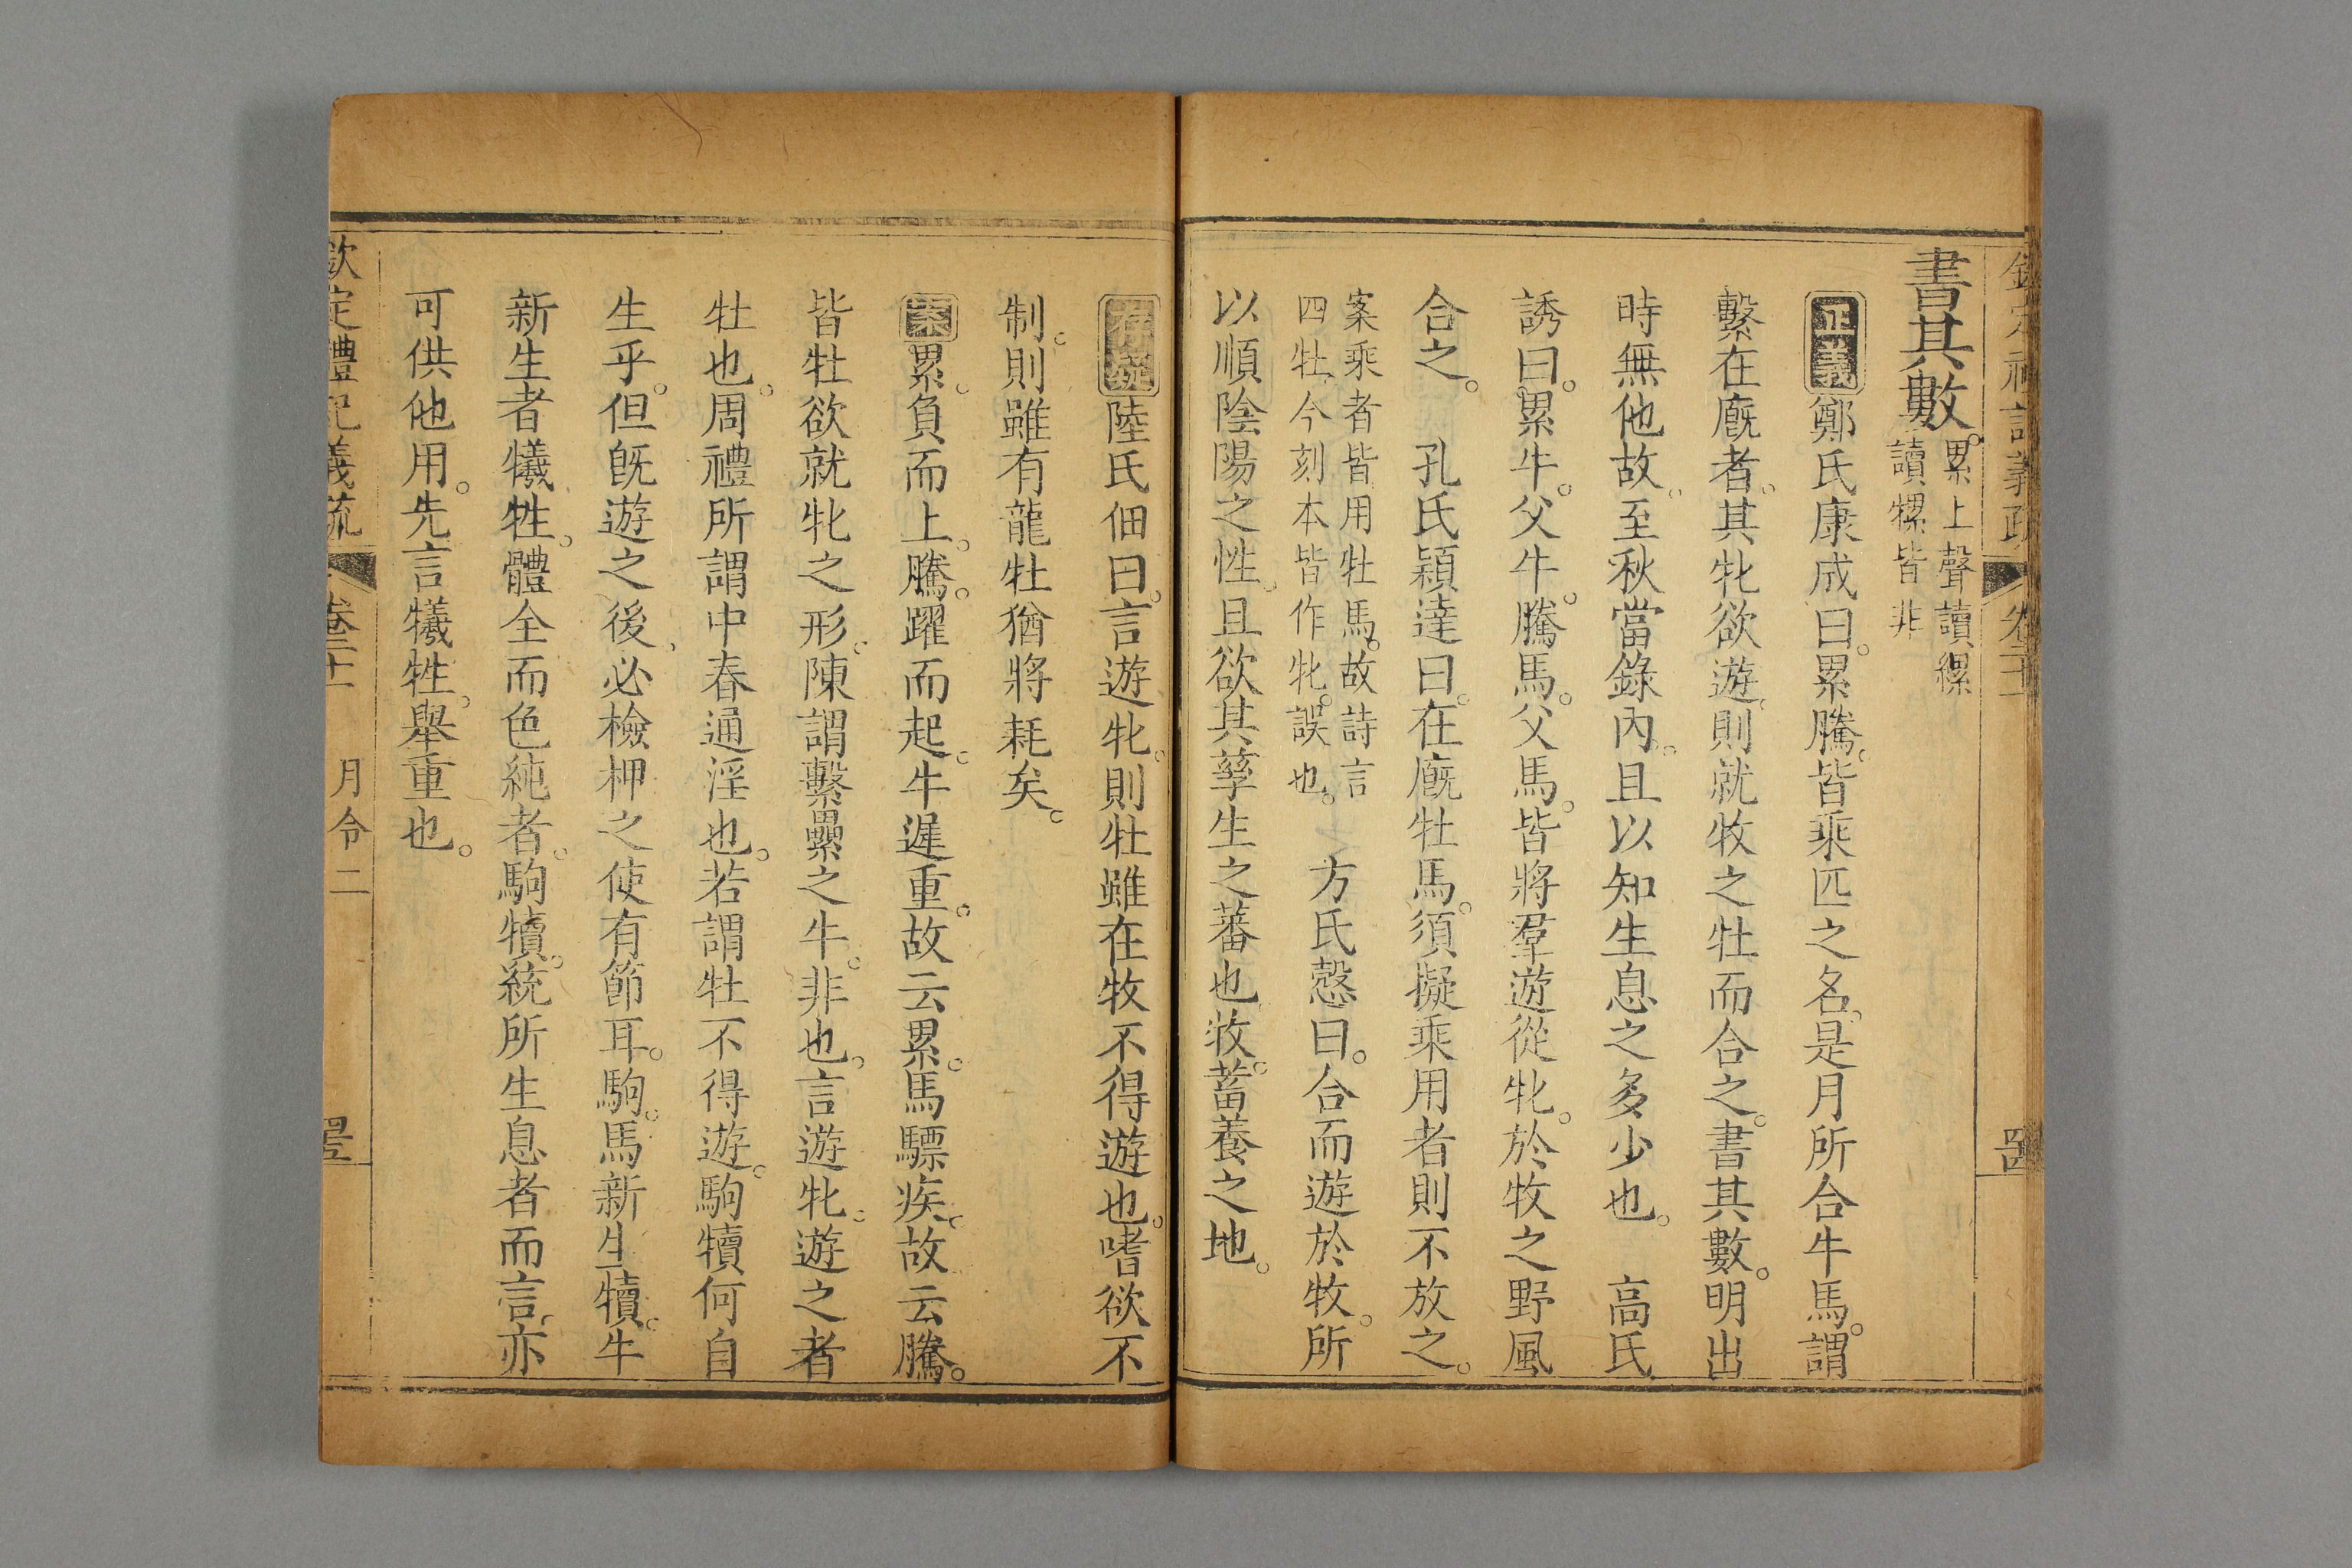 欽定禮記義疏 卷二十一 𦊆
書其數。累上聲讀縲
讀㹎皆非
正義鄭氏康成曰。累騰。皆乘匹之名。是月所合牛馬。謂
繫在廐者。其牝欲遊。則就牧之牡而合之。書其數。明出
時無他故。至秋當錄內。且以知生息之多少也。 高氏
誘曰。累牛。父牛。騰馬。父馬。皆將羣遊從牝。於牧之野風
合之。 孔氏穎達曰。在廐牡馬。須擬乘用者則不放之。
案乘者皆用牡馬。故詩言
四牡。今刻本皆作牝。誤也。
方氏慤曰。合而遊於牧。所
以順陰陽之性。且欲其孳生之蕃也。牧。蓄養之地。
存疑陸氏佃曰。言遊牝。則牡雖在牧不得遊也。嗜欲不
制。則雖有龍牡猶將耗矣。
案累。負而上。騰。躍而起。牛遲重。故云累。馬驃疾。故云騰。
皆牡欲就牝之形。陳謂繫纍之牛。非也。言遊牝。遊之者
牡也。周禮所謂中春通淫也。若謂牡不得遊。駒犢何自
生乎。但旣遊之後。必檢柙之使有節耳。駒。馬新生。犢。牛
新生者犧牲。體全而色純者。駒犢。統所生息者而言。亦
可供他用。先言犧牲。舉重也。
欽定禮記義疏 卷二十一 月令二